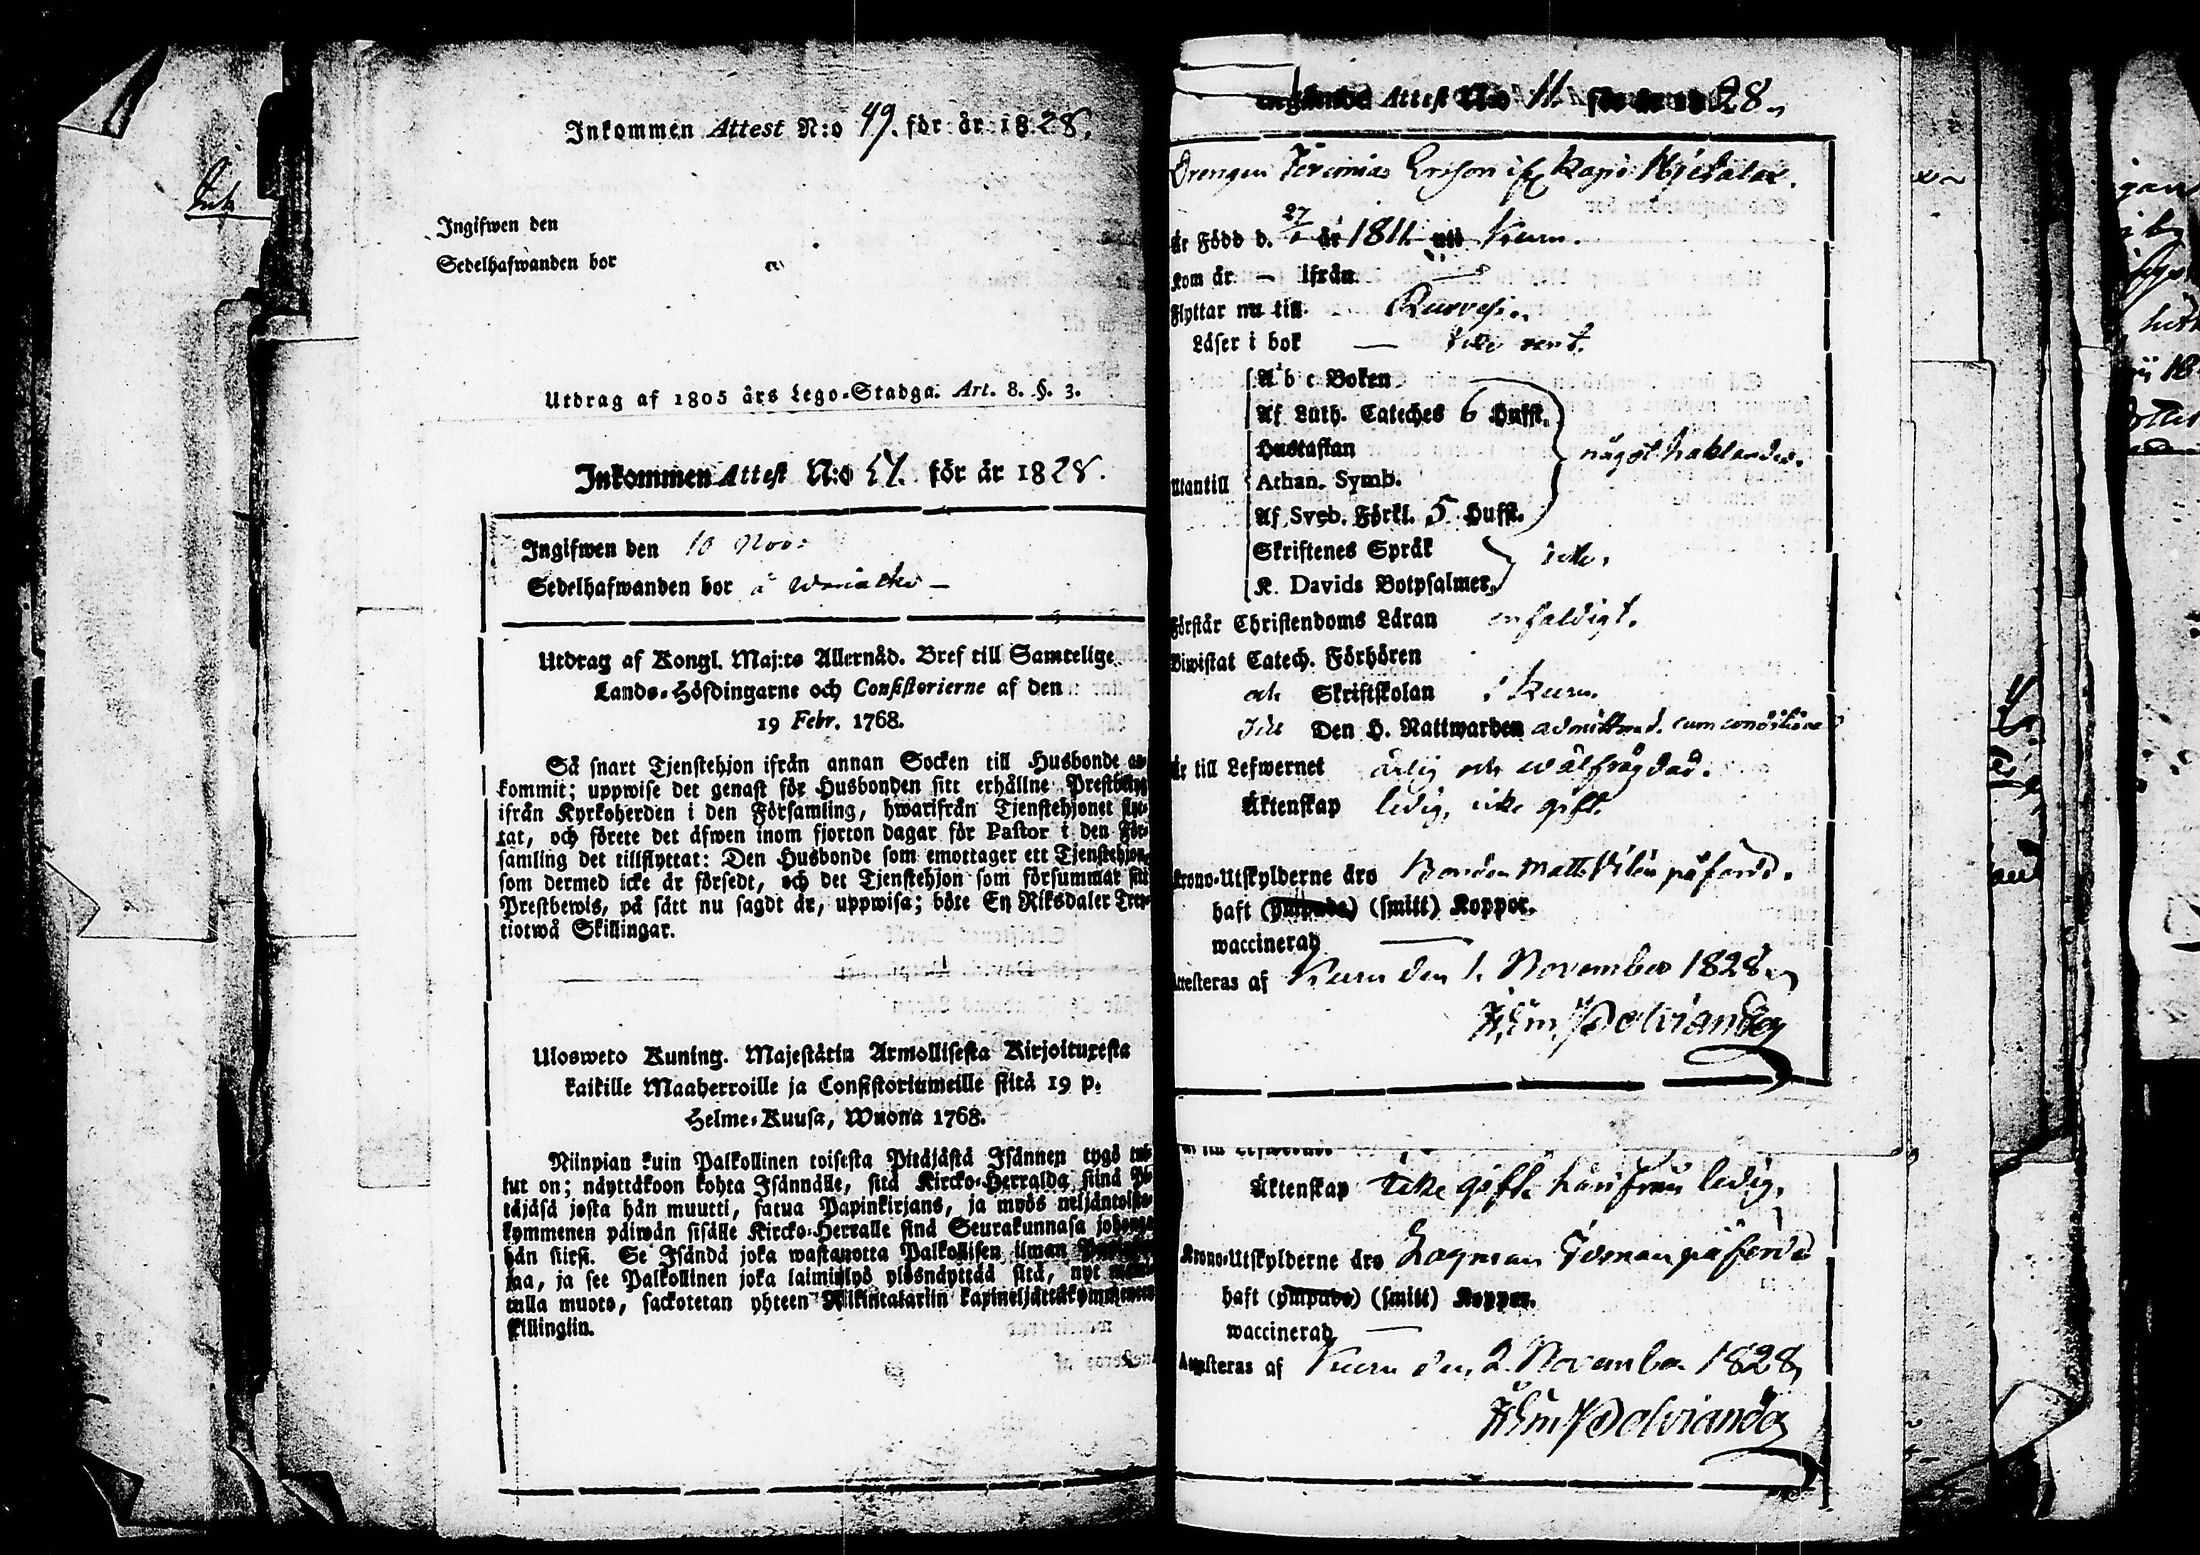 Inkommen Attest N:o 49. för år 1828.
Ingifwen den
Sedelhafwanden bor
Utdrag af 1805 års Lego-Stadga. Art. 8. §. 3.
Inkommen Attest N:o 51. för år 1828.
Ingifwen den 10 Nov:
Sedelhafwanden bor å
Utdrag af Kongl. Maj:ts Allernåd. Bref till Samtelige
Lands-Höfdingarne och Consistorierne af den
19 Febr. 1768.
Så snart Tjenstehjon ifrån annan Socken till Husbonde an-
kommit; uppwise det genast för Husbonden sitt erhållne Prestbewis
ifrån Kyrkoherden i den Församling, hwarifrån Tjenstehjonet flyt-
tat, och förete det äfwen inom fjorton dagar för Pastor i den För-
samling det tillflyttat: Den Husbonde som emottager ett Tjenstehjon,
som dermed icke är försedt, och det Tjenstehjon som försummar sitt
Prestbewis, på sätt nu sagdt är, uppwisa; böte En Riksdaler Tret-
tiotwå Skillingar.
Ulosweto Kuning. Majestätin Armollisesta Kirjoituxesta
kaikille Maaherroille ja Consistoriumeille siitä 19 p.
Helme-Kuusa, Wuona 1768.
Niinpian kuin Palkollinen toisesta Pitäjästä Isännen tygö tul-
lut on; näyttäkoon kohta Isännälle, sitä Kircko-Herralda siinä Pi-
täjäsä josta hän muutti, saatua Papinkirjans, ja myös neljäntoista-
kymmenen päiwän sisälle Kircko-Herralle sinä Seurakunnasa johonga
hän siirsi. Se Isändä joka wastanotta Palkollisen ilman
jaa, ja see Palkollinen joka laiminlyö ylösnäyttää sitä, nyt
tulla muoto, sackotetan yhteen Rikintalariin kaxineljättäkymmeneen
skillingiin.
Attest N:o 11. för år 1828.
Drengen Jeremias Erikson ifr Kapi Mjetalax.
är Född d. 27/1 år 1811. uti Kuru.
kom år — ifrån —
Flyttar nu till Ruovesi.
Läser i bok — icke rent.
A b c Boken
Af Luth. Cateches 6 Hufst.
Hustaflan
Utantill Athan. Symb. något haklandes.
Af Sveb. Förkl. 5 Hufst.
Skriftenes Språk
K. Davids Botpsalmer, icke.
Förstår Christendoms Läran enfaldigt.
Biwistat Catech. Förhören
och Skriftskolan i Kuru.
icke Den H. Nattwarden admitterad. cum conditione
är till Lefwernet ärlig och wälfrägdad.
Äktenskap ledig, icke gift.
Krono-Utskylderne äro Bonden Matts Vilén påförd.
haft (ympade) (smitt) Koppor.
waccinerad —
Attesteras af Kuru den 1. November 1828.
Äktenskap icke gift. härifrån ledig.
Krono-Utskylderne äro påförd
haft (ympade) (smitt) Koppor.
waccinerad —
Attesteras af Kuru den 2. November 1828,